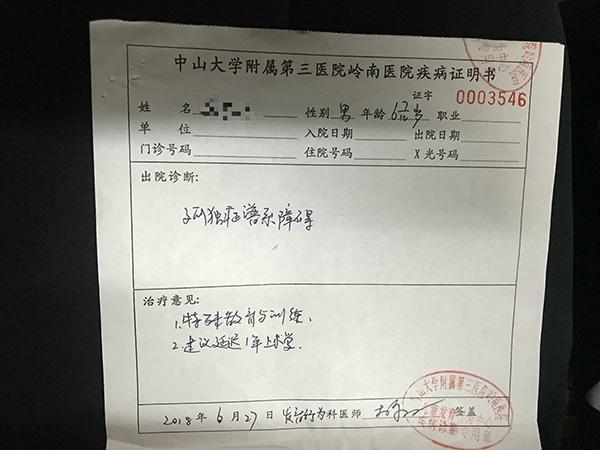 中山大学附属第三医院岭南医院疾病证明书
证字 0003546
姓 名 性别 男 年龄 职业
单 位 入院日期 出院日期
门诊号码 住院号码 X光号码
出院诊断:
孤独症谱系障碍
治疗意见:
1.特殊教育与训练、
2.建议延迟1年上学。
2018年6月27日 发育行为科医师 签盖